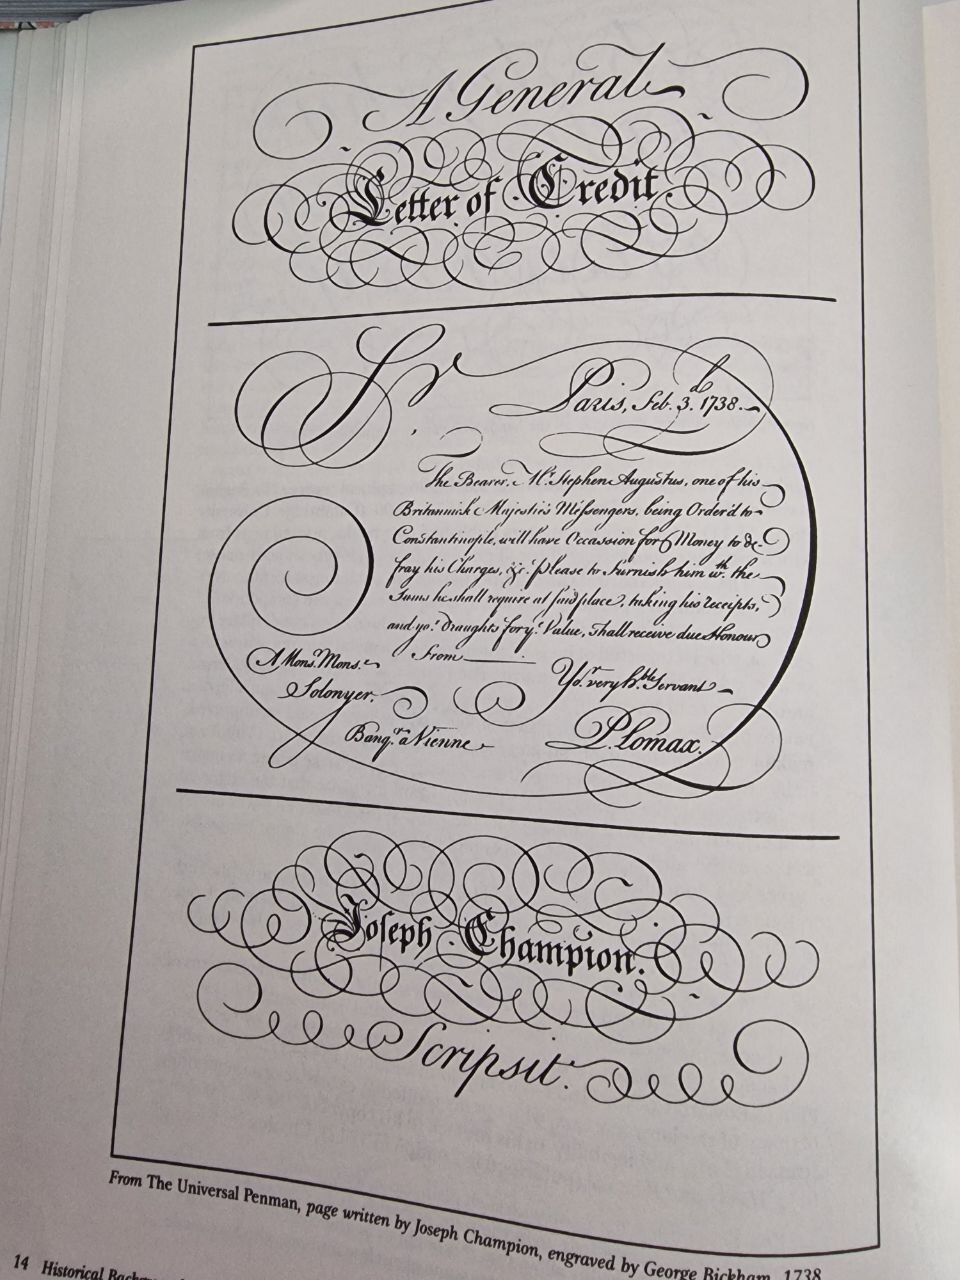 A General
Letter of Credit.
Sr
Paris, Feb. 3.d 1738.
The Bearer, Mr. Stephen Augustus, one of his
Britannick Majestie's Messengers, being Order'd to
Constantinople, will have Occassion for Money to de-
fray his Charges, &c. Please to Furnish him wth. the
Sums he shall require at said place, taking his receipts,
and yor. Draughts for ye. Value, shall receive due Honour
From
A Monsr. Mons.
Yor. very h.ble Servant
Solonyer.
Banqr. a Vienne
P. Lomax.
Joseph Champion.
Scripsit.
From The Universal Penman, page written by Joseph Champion, engraved by George Bickham, 1738
14 Historical